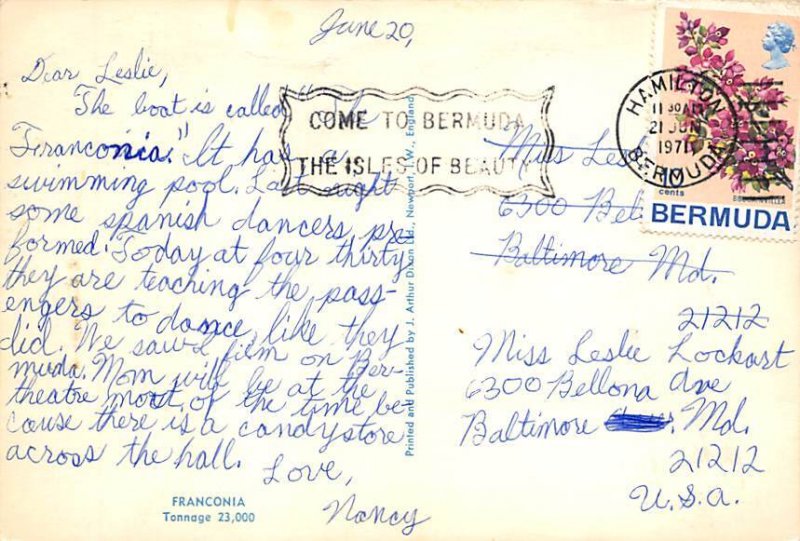 June 20,
Dear Leslie,
The boat is called "The
Franconia." It has a
swimming pool. Last night
some spanish dancers pre-
formed. Today at four thirty
they are teaching the pass-
engers to dance like they
did. We saw a film on Ber-
muda. Mom will be at the
theatre most of the time be-
cause there is a candy store
across the hall.
Love,
Nancy
FRANCONIA
Tonnage 23,000
Printed and Published by J. Arthur Dixon Ltd., Newport, I.W., England
COME TO BERMUDA
THE ISLES OF BEAUTY
HAMILTON
11 30 AM
21 JUN
1971
BERMUDA
cents
BOUGAINVILLEA
BERMUDA
Miss Les
6300 Bel
Baltimore Md.
21212
Miss Leslie Lockart
6300 Bellona Ave
Baltimore Md.
21212
U.S.A.